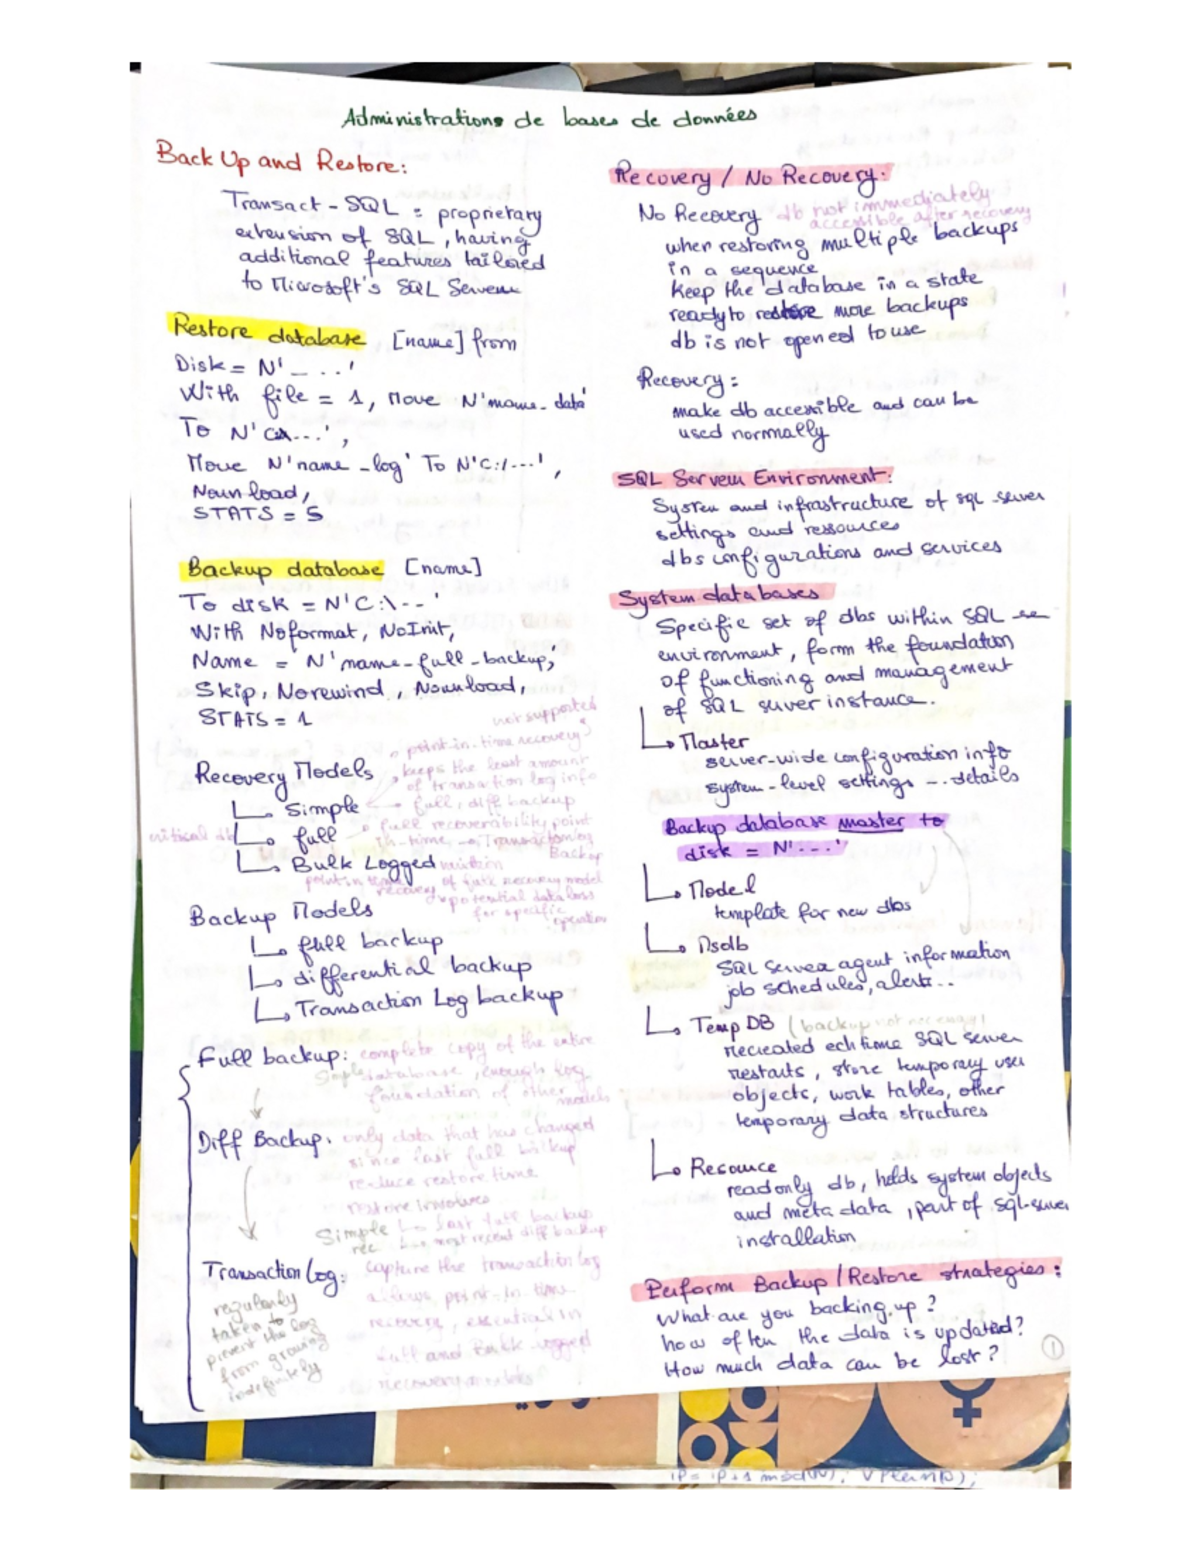 Administrations de bases de données
Back Up and Restore:
Transact-SQL : proprietary
extension of SQL, having
additional features tailored
to Microsoft's SQL Server
Restore database [name] from
Disk = N'_ ...'
With file = 1, Move N'name_data'
To N'C:\...',
Move N'name_log' To N'C:/...',
Nounload,
STATS = 5
Backup database [name]
To disk = N'C:\--'
With Noformat, NoInit,
Name = N'name-full-backup;
Skip, Norewind, Nounload,
STATS = 1
Recovery Models
not supported
point-in-time recovery
keeps the least amount
of transaction log info
Simple
full, diff backup
critical db
full
full recoverability, point
in-time → Transaction log
Backup
Bulk Logged
point in time
recovery of full recovery model
potential data loss
for specific
operation
Backup Models
full backup
differential backup
Transaction Log backup
Full backup: complete copy of the entire
Simple database, enough log
foundation of other
models
Diff Backup: only data that has changed
since last full backup
reduce restore time
restore involves
Simple last full backup
rec most recent diff backup
Transaction Log: capture the transaction log
allows point-in-time
recovery, essential in
full and Bulk-logged
recovery models
regularly
taken to
prevent the log
from growing
indefinitely
Recovery / No Recovery:
No Recovery db not immediately
accessible after recovery
when restoring multiple backups
in a sequence
Keep the database in a state
ready to restore more backups
db is not opened to use
Recovery:
make db accessible and can be
used normally
SQL Server Environment:
System and infrastructure of sql-server
settings and ressources
dbs configurations and services
System databases
Specific set of dbs within SQL se
environment, form the foundation
of functioning and management
of SQL server instance.
Master
server-wide configuration info
system-level settings ... details
Backup database master to
disk = N'...'
Model
template for new dbs
Msdb
SQL Server agent information
job schedules, alerts..
Temp DB (backup not necessary)
recreated ech time SQL server
restarts, store temporary user
objects, work tables, other
temporary data structures
Resource
readonly db, holds system objects
and meta data, part of sql-server
installation
Perform Backup/Restore strategies:
What are you backing up?
how often the data is updated?
How much data can be lost?
1